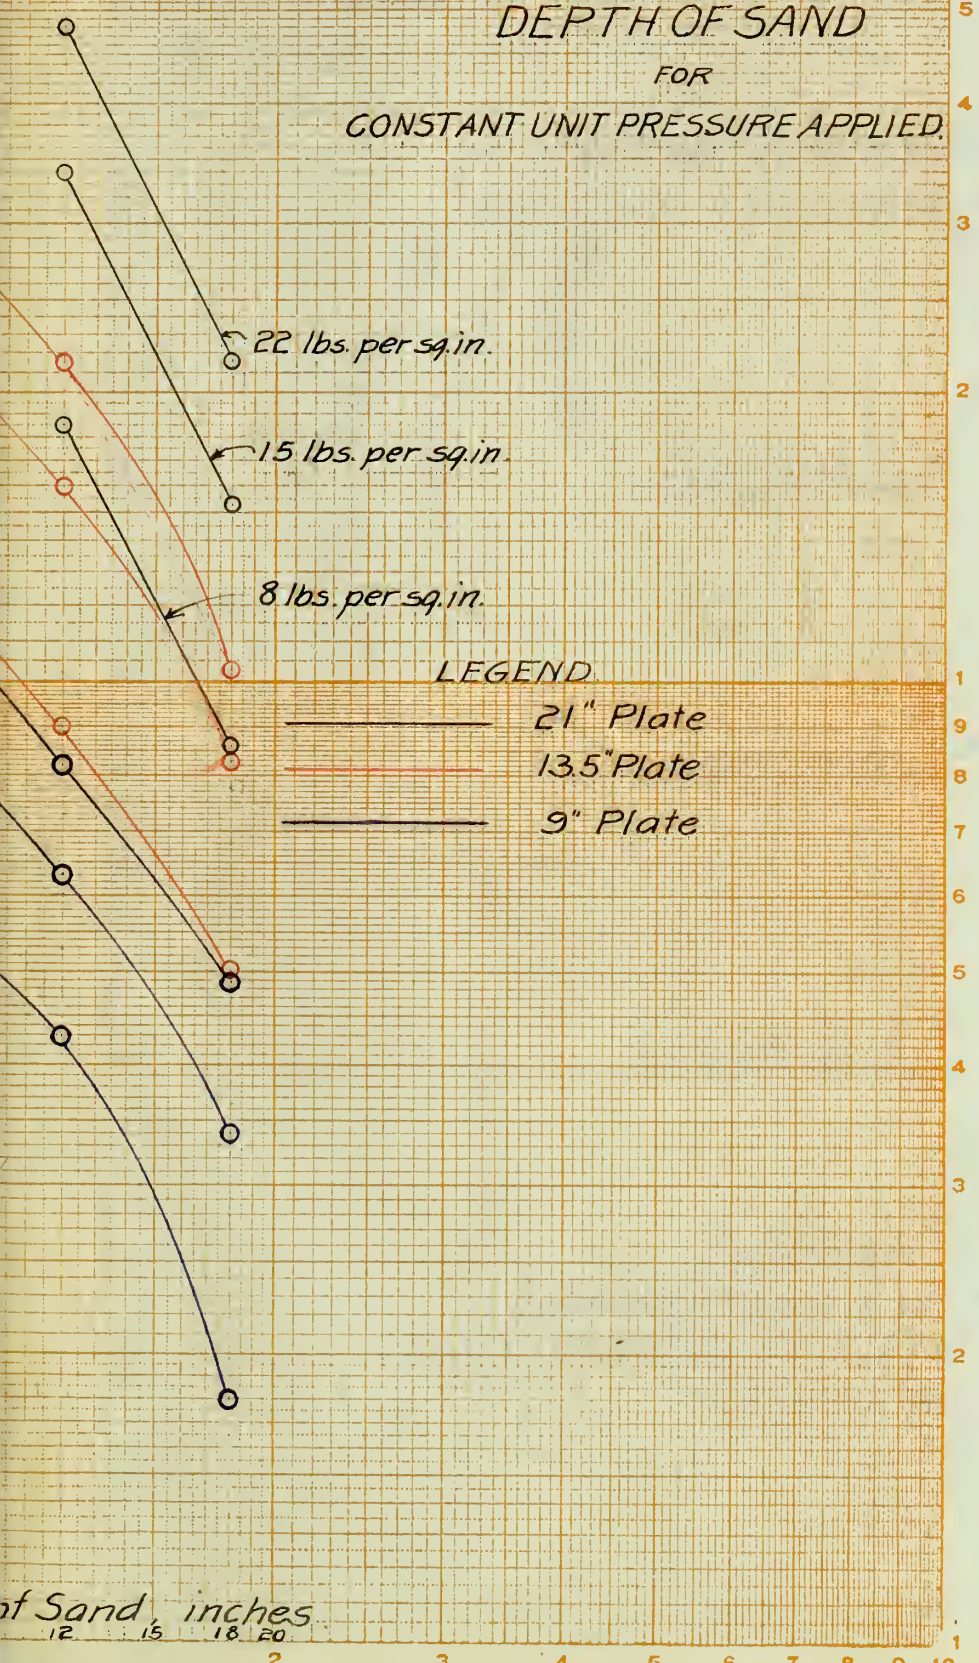 DEPTH OF SAND
FOR
CONSTANT UNIT PRESSURE APPLIED.
22 lbs. per sq.in.
15 lbs. per sq.in.
8 lbs. per sq.in.
LEGEND
21" Plate
13.5" Plate
9" Plate
5
4
3
2
1
9
8
7
6
5
4
3
2
1
of Sand, inches
12 15 18 20
2 3 4 5 6 7 8 9 10